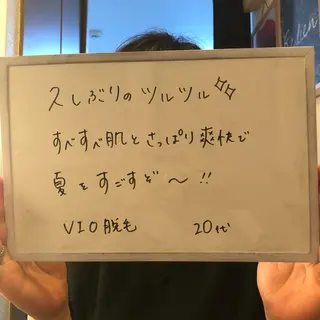 久しぶりのツルツル✨
すべすべ肌とさっぱり爽快で
夏をすごすぞ〜!!
VIO脱毛 20代